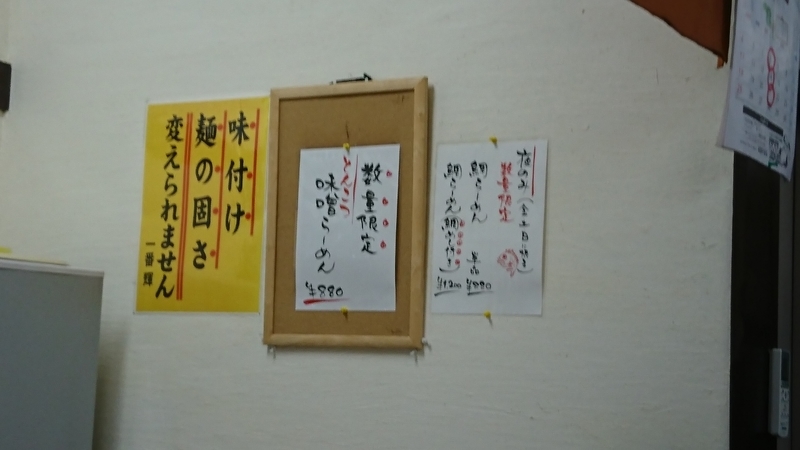 味付け
麺の固さ
変えられません
一番輝
数量限定
とんこつ
味噌らーめん
¥880
夜のみ(金土日
数量限定
鯛らーめん 単品 ¥880
鯛らーめん ¥1,200